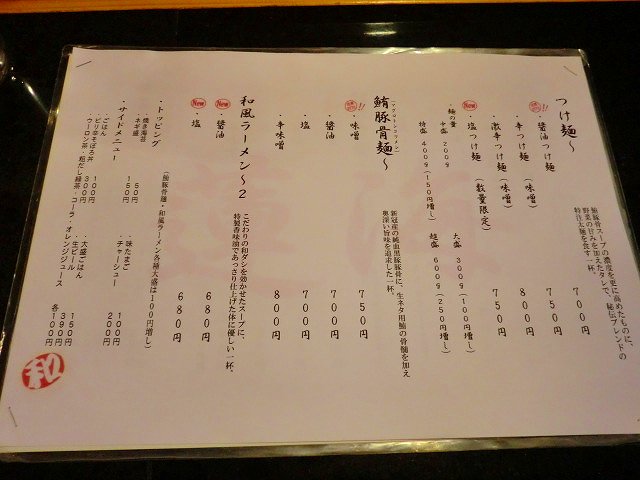 つけ麺～
鮪豚骨スープの濃度を更に高めたものに、
野菜の甘みを加えたタレで、秘伝ブレンドの
特注太麺を食す一杯、
・醤油つけ麺 700円
・辛つけ麺（味噌） 750円
・激辛つけ麺（味噌） 800円
New
・塩つけ麺（数量限定） 750円
・麺の量
中盛 200g 大盛 300g（100円増し）
特盛 400g（150円増し） 超盛 600g（250円増し）
鮪豚骨麺～
（マグロトンコツメン）
新冠産の純血黒豚豚骨に、生ネタ用鮪の骨髄を加え
奥深い旨味を追求した一杯、
・味噌 750円
・醤油 700円
・塩 700円
・辛味噌 800円
和風ラーメン～2
こだわりの和ダシを効かせたスープに、
特製香味油であっさり仕上げた体に優しい一杯、
New
・醤油 680円
New
・塩 680円
・トッピング （鮪豚骨麺・和風ラーメン各種大盛は100円増し）
・焼き海苔 50円 ・味たまご 100円
・ネギ盛 150円 ・チャーシュー 200円
・サイドメニュー
・ごはん 100円 ・大盛ごはん 150円
・ピリ辛そぼろ丼 300円 ・生ビール 390円
・ウーロン茶・粗だし緑茶・コーラ・オレンジジュース 各100円
和